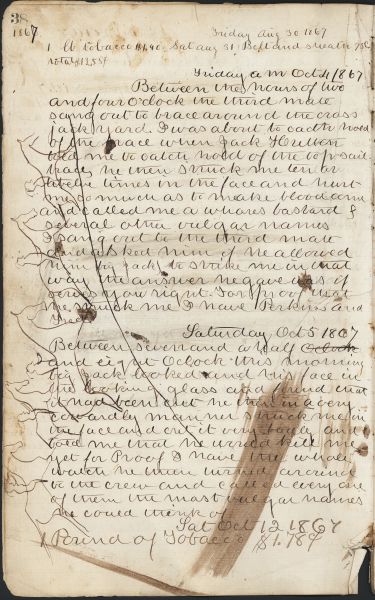 38
1867 Friday Aug 30 1867
1 lb tobacco $1.40. Sat Aug 31, Belt and sheath 75¢
total $12,55¢
Friday a m Oct 4/1867
Between the hours of two
and four Oclock the third mate
sang out to brace around the cross
jack yard. I was about to catch hold
of the brace when Jack Hutton
told me to catch hold of the topsail
brace, he then struck me ten or
twelve times in the face and hurt
me so much as to make blood come
and called me a whores bastard &
several other vulgar names
I sang out to the third mate
and asked him if he allowed
him big jack to strike me in that
way the answer he gave was if
serves you right. For proof that
he struck me I have Perkins and
Saturday Oct 5 1867
Between seven and a half Oclock
and eight Oclock this morning
big jack looked and his face in
the looking glass and found that
it had been cut he then in a very
cowardly manner struck me in
the face and cut it very badly and
told me that he would kill me
yet for Proof I have the whole
watch he then turned around
to the crew and called every one
of them the most vulgar names
he could think of
Sat Oct 12 1867
1 Pound of Tobacco $1.78¢